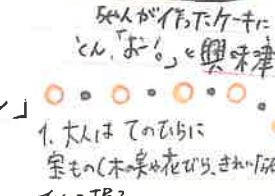 ちゃんが作ったケーキに
とん、「おー!」と興味津
ン」
1. 大人は てのひらに
宝もの(木の実や花びら、きれいな